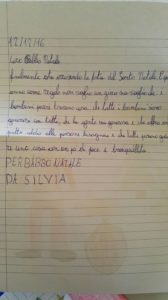 12/12/16
Caro Babbo Natale
finalmente sta arrivando la festa del Santo Natale. Quest'
anno come regalo non voglio un gioco ma voglio che i
bambini poveri trovino una che tutti i bambini siano
generosi con tutti, che la gente sia generosa e che offra un
piatto caldo alle persone bisognose e che tutti
e una casa con un po' di pace e tranquillità
PER BABBO NATALE
DA SILVIA